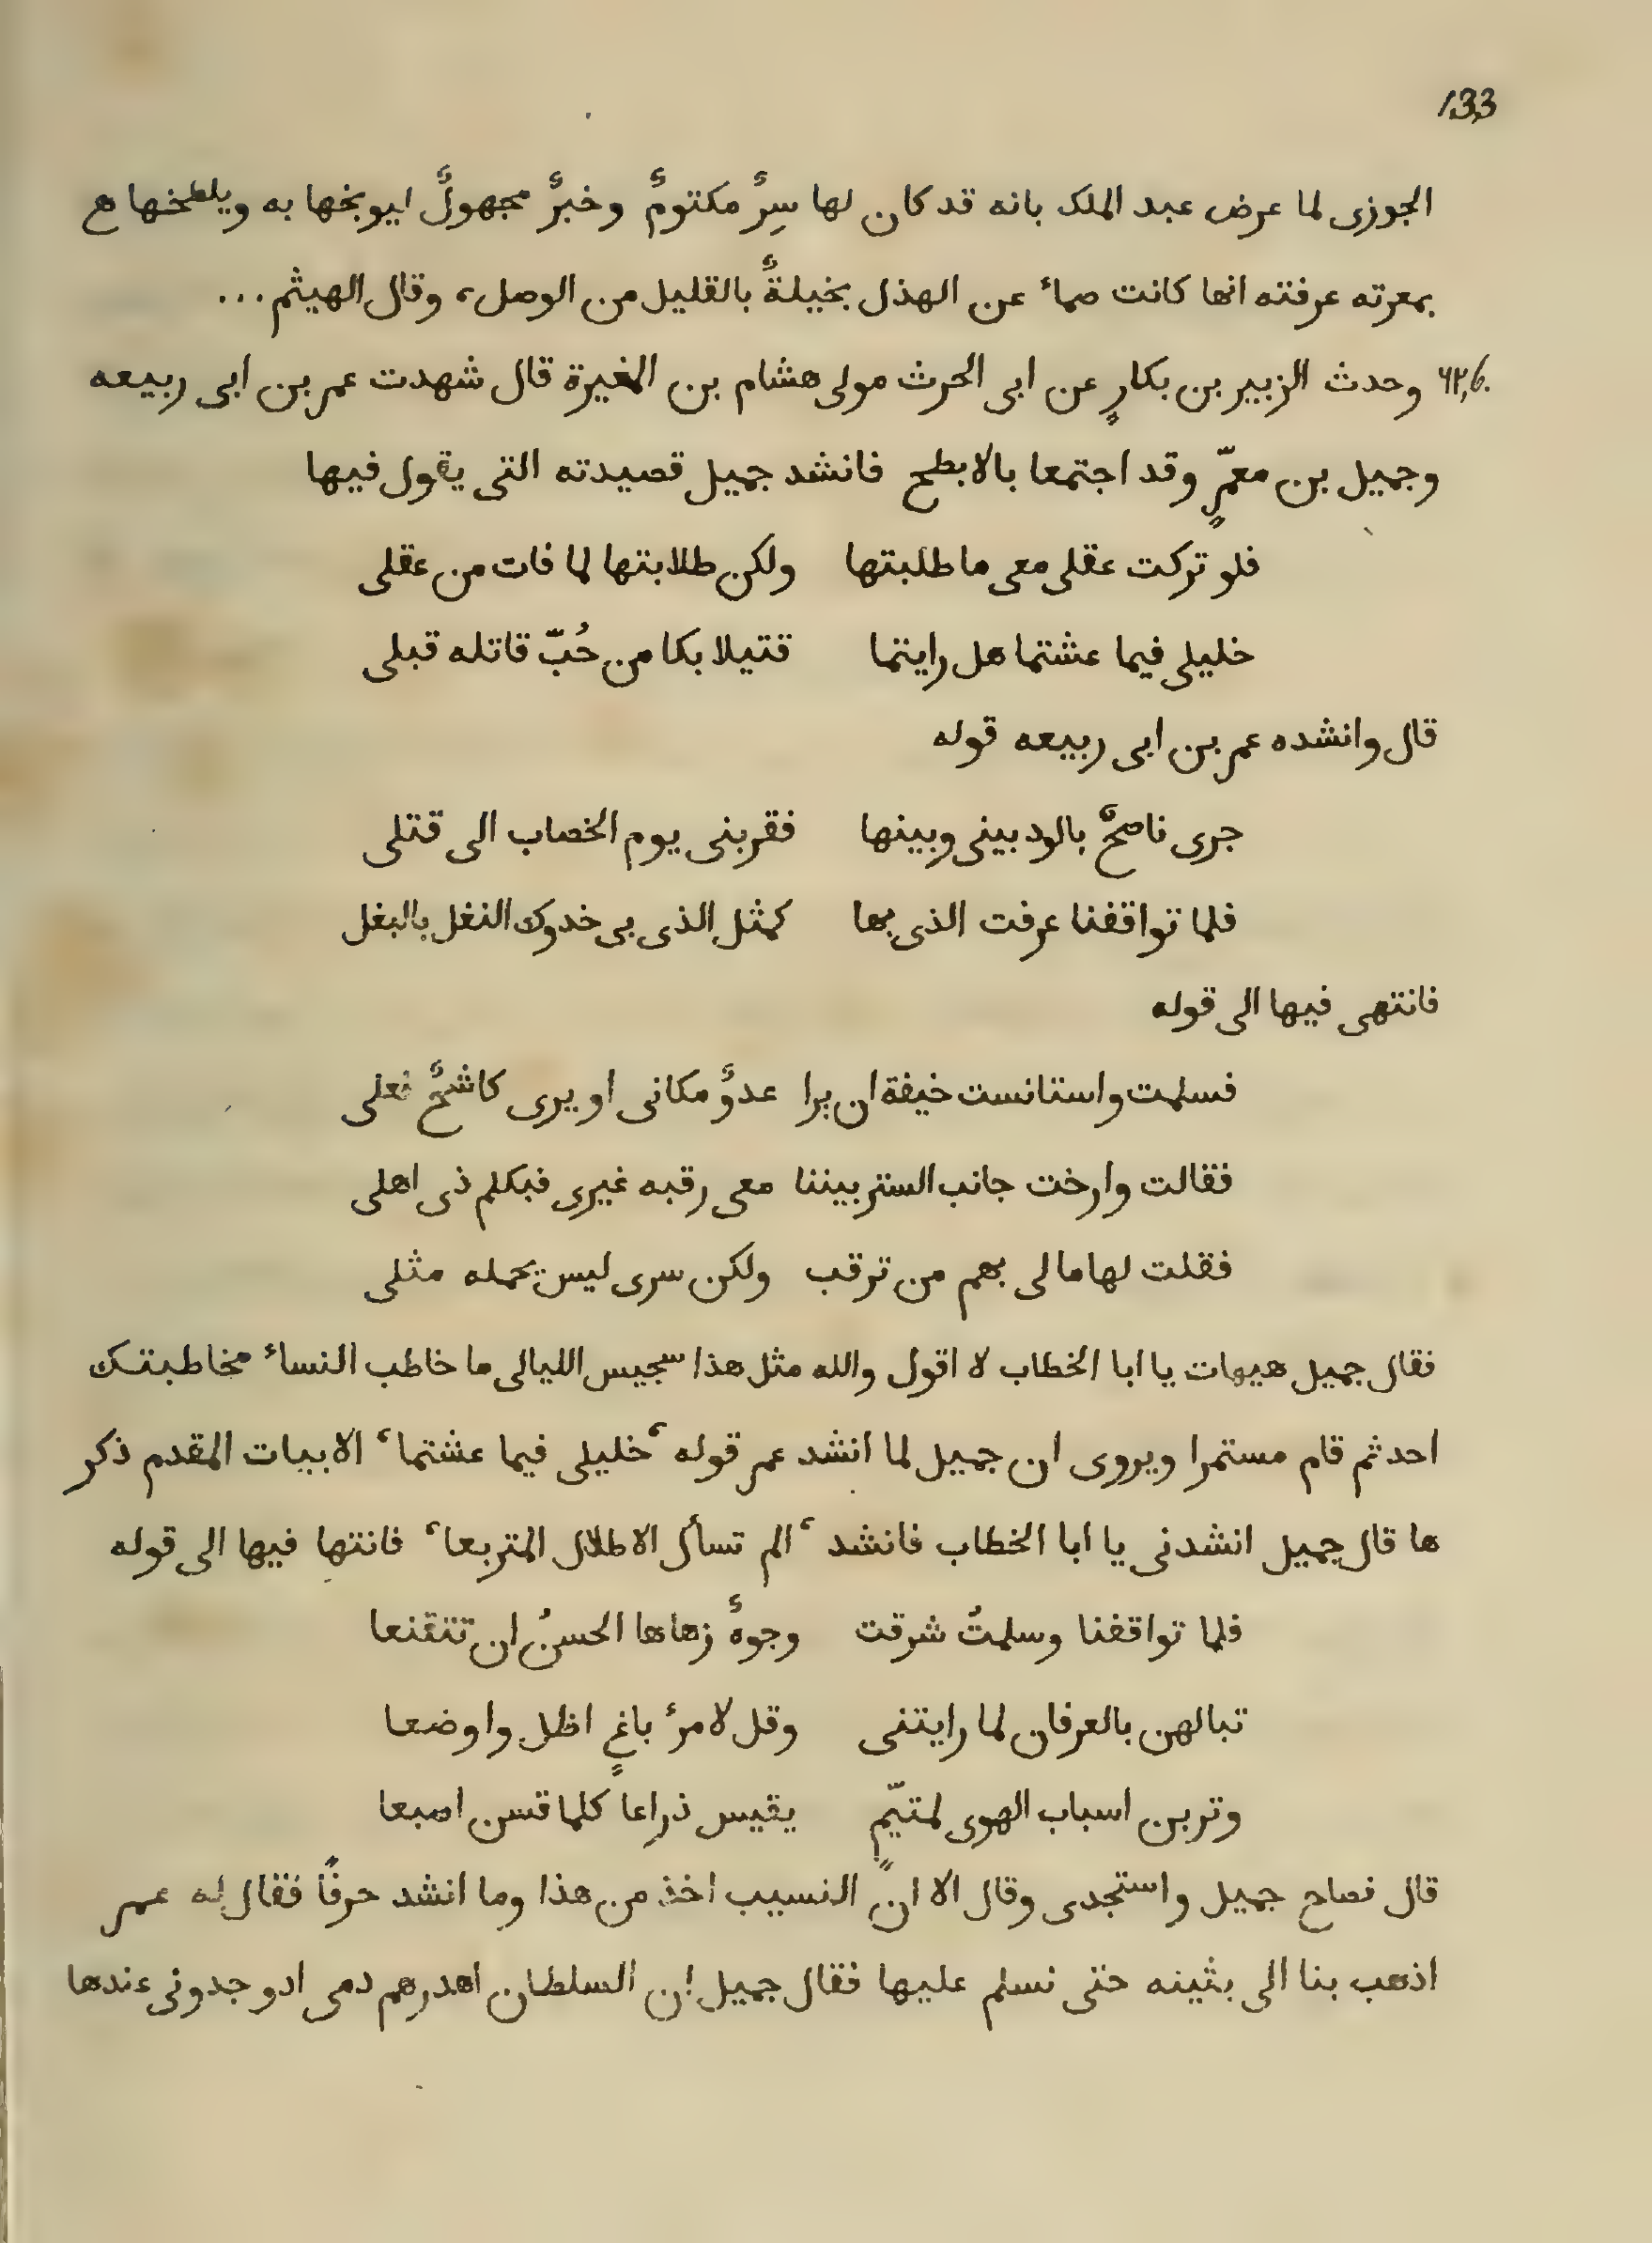 133
الجوزى لما عرض عبد الملك بانه قد كان لها سِرٌّ مكتومٌ وخبرٌ مجهولٌ ليوبخها به ويلطخها مع
بمعرته عرفته انها كانت صماء عن الهذل بخيلةٌ بالقليل من الوصل، وقال الهيثم ...
وحدث الزبير بن بكارٍ عن ابى الحرث مولى هشام بن المغيرة قال شهدت عمر بن ابى ربيعه
وجميل بن معمّرٍ وقد اجتمعا بالابطح فانشد جميل قصيدته التى يقول فيها
فلو تركت عقلى معى ما طلبتها ولكن طلابتها لما فات من عقلى
خليلى فيما عشتما هل رايتما قتيلا بكا من حُبّ قاتله قبلى
قال وانشده عمر بن ابى ربيعه قوله
جرى ناصحٌ بالود بينى وبينها فقربنى يوم الخصاب الى قتلى
فلما تواقفنا عرفت الذى بها كمثل الذى بى خدوك النغل بالبغل
فانتهى فيها الى قوله
فسلمت واستانست خيفة ان يرا عدوٌّ مكانى او يرى كاشحٌ فعلى
فقالت وارخت جانب الستر بيننا معى رقبه غيرى فبكلم ذى اهلى
فقلت لها مالى بهم من ترقب ولكن سرى ليس يحمله مثلى
فقال جميل هيهات يا ابا الخطاب لا اقول والله مثل هذا سجيس الليالى ما خاطب النساء مخاطبتك
احد ثم قام مستمرا ويروى ان جميل لما انشد عمر قوله ‘خليلى فيما عشتما‘ الابيات المقدم ذكر
ها قال جميل انشدنى يا ابا الخطاب فانشد ‘الم تسأل الاطلال المتربعا‘ فانتها فيها الى قوله
فلما تواقفنا وسلمتُ شرقت وجوهٌ زهاها الحسنُ ان تتقنعا
تبالهن بالعرفان لما رايتنى وقل لامرء باغٍ اظل واوضعا
وتربن اسباب الهوى لمتيّمٍ يقيس ذراعا كلما قسن اصبعا
قال فصاح جميل واستجدى وقال الا انّ النسيب اخذ من هذا وما انشد حرفًا فقال له عمر
اذهب بنا الى بثينه حتى نسلم عليها فقال جميل ان السلطان اهدرهم دمى ادو جدونى عندها